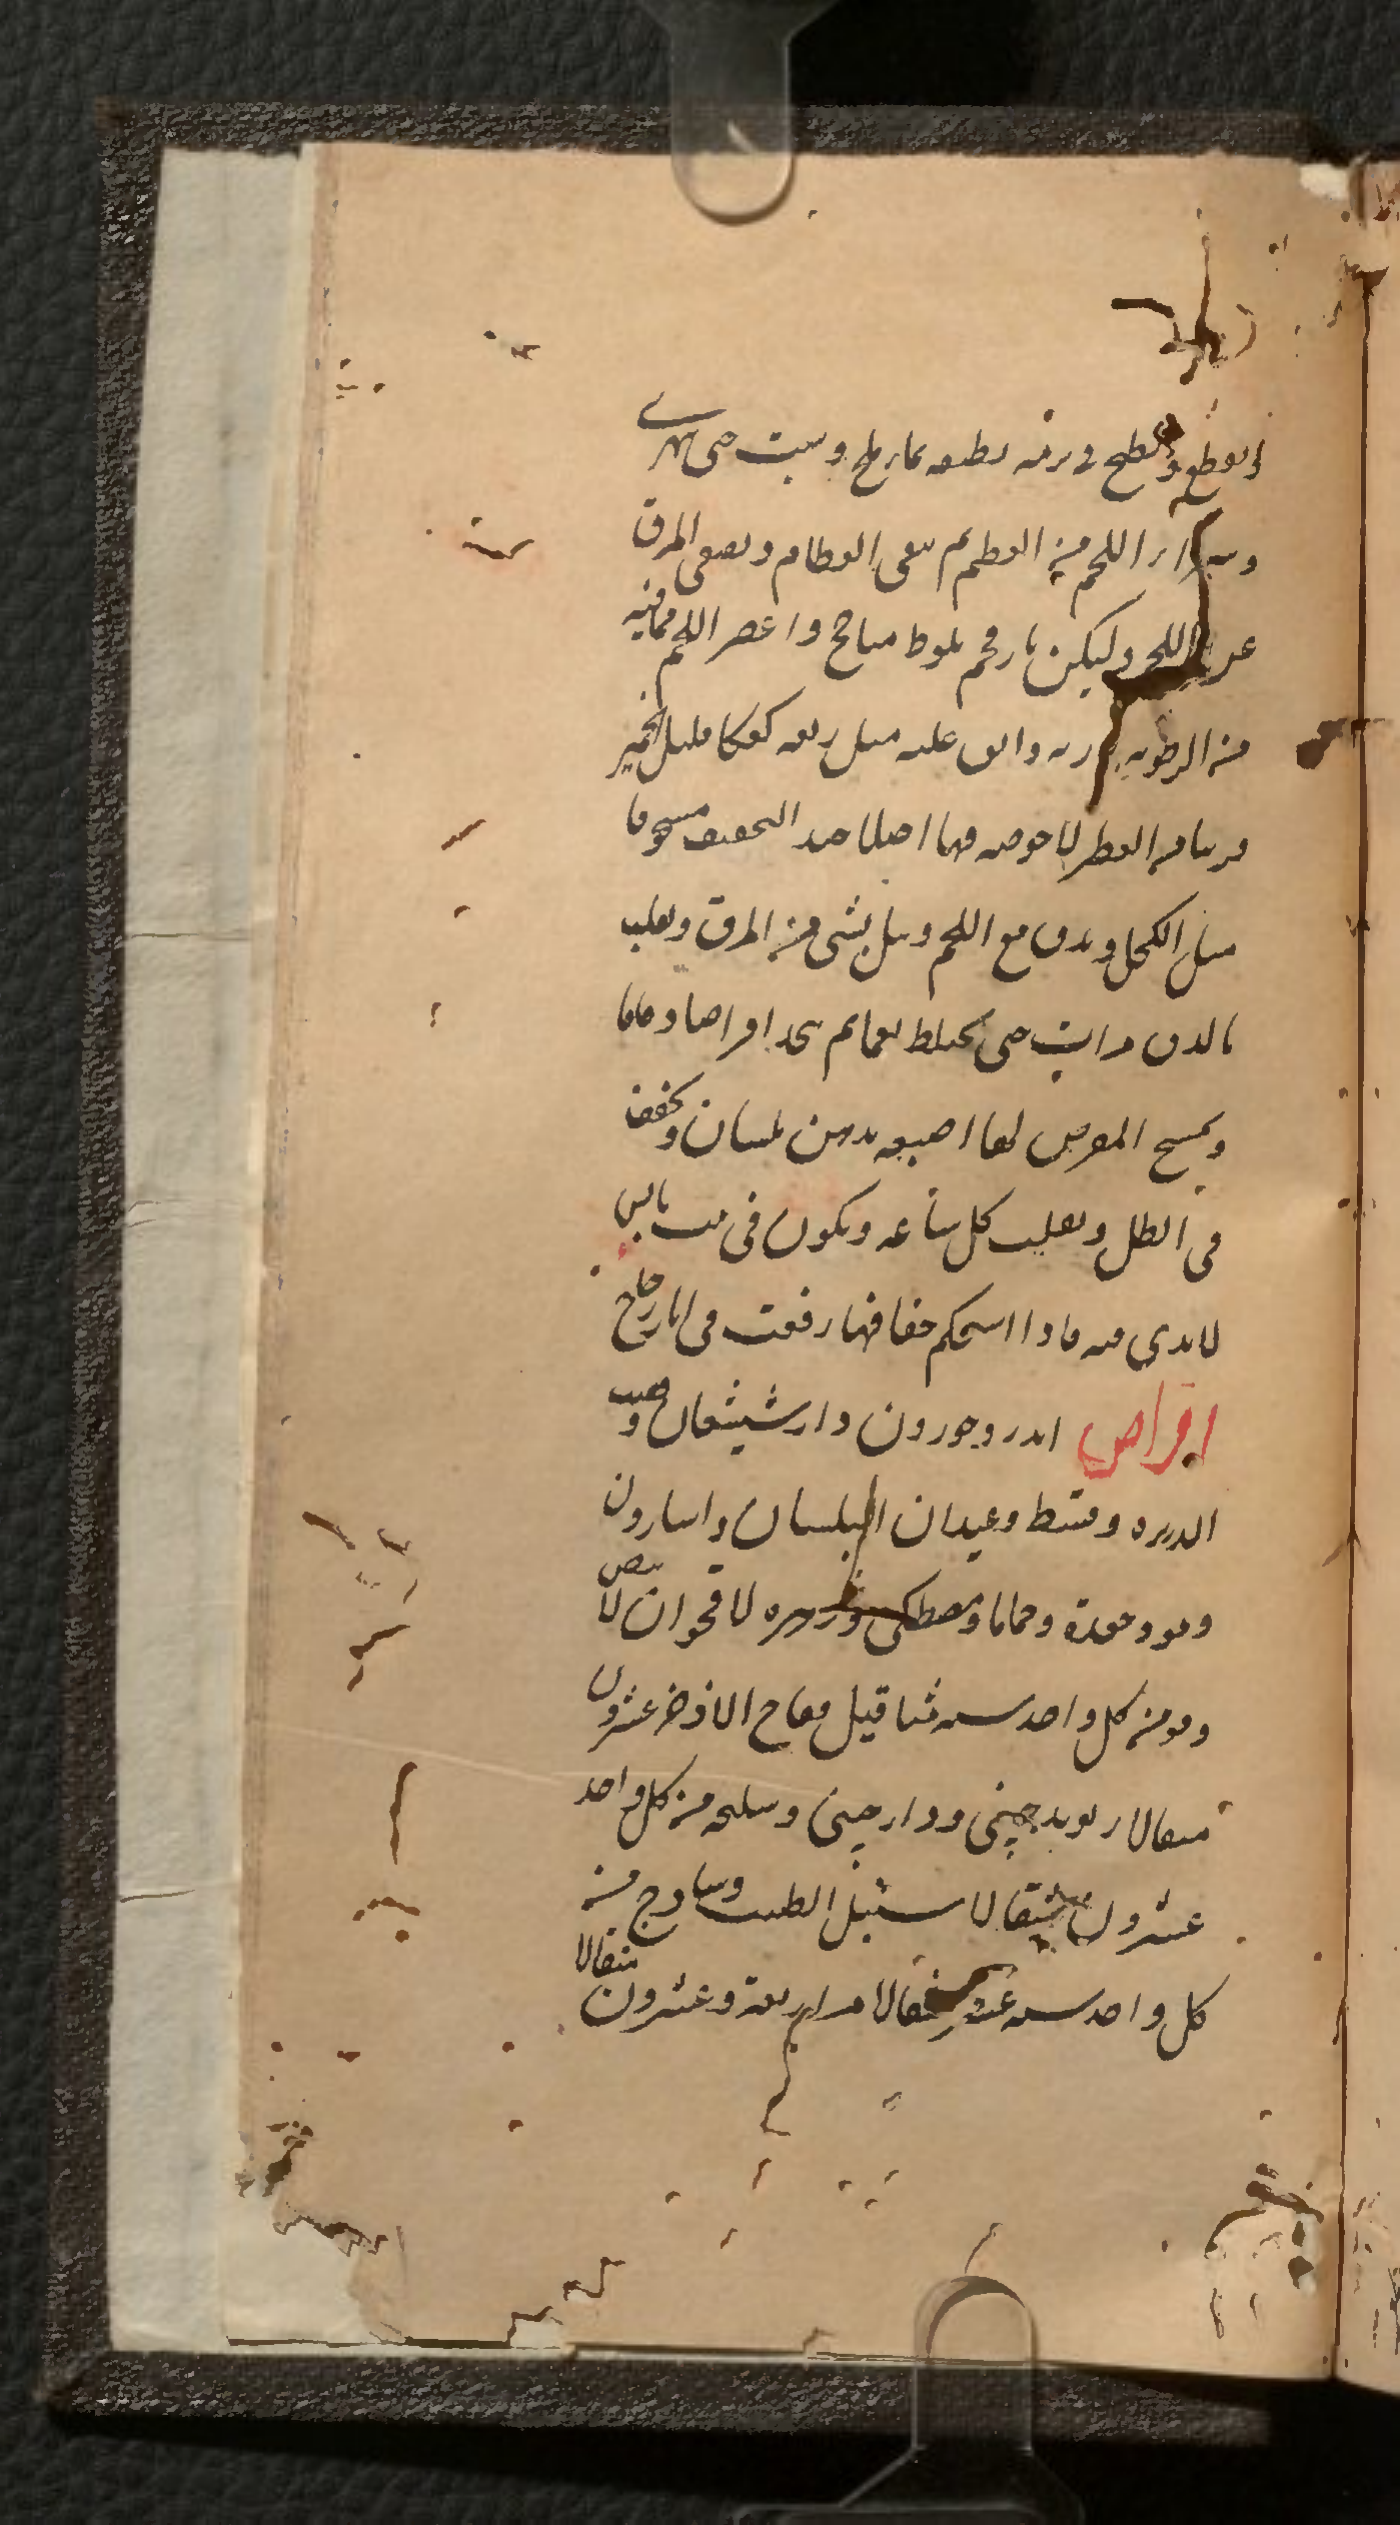 ويطبخ في برمه نطيفه بماء وملح وشبت حتى يتهرى
اللحم من العطم ثم ينقى العطام ويصفى المرق
عن اللحم وليكن نار فحم بلوط واعصر اللحم مما فيه
من الرطوبه والق عليه مثل ربعه كعكا قليل الخمير
العطر لا حموضه فيها اصلا جيد التجفيف مسحوقا
مثل الكحل ويدق مع اللحم وبل بشى من المرق ويقلب
بالدق حتى يختلط نعما ثم يتخذ اقراصا رقاقا
ويمسح المقرص لها اصبعه بدهن بلسان ويجفف
في الظل ويقلب كل ساعه ويكون في بيت يابس
لا ندى فيه فاذا استحكم جفافها رفعت في انا زجاج
اقراص اندروخورون دارشيشعان وقصب
الذريره وقسط وعيدان البلسان واسارون
وفو وجعده وحماما ومصطكى وزهره الاقحوان الابيض
ومو من كل واحد سته مثاقيل فقاح الاذخر عشرون
مثقالا ريوند صيني ودارصيني وسليخه من كل واحد
عشرون مثقالا سنبل الطيب وسادج من
كل واحد سته عشر مثقالا مر اربعة وعشرون مثقالا